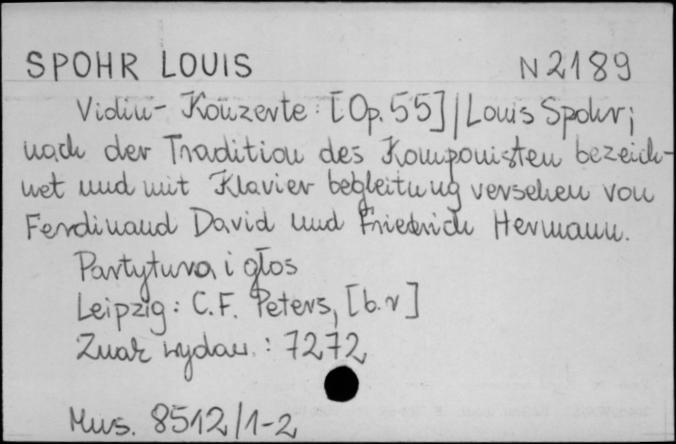 SPOHR LOUIS N 2189
Violin - Konzerte : [Op. 55] / Louis Spohr ;
nach der Tradition des Komponisten bezeich-
net und mit Klavier begleitung versehen von
Ferdinand David und Friedrich Hermann.
Partytura i głos
Leipzig : C. F. Peters, [b. r]
Znak wydaw. : 7272
Mus. 8512/1-2